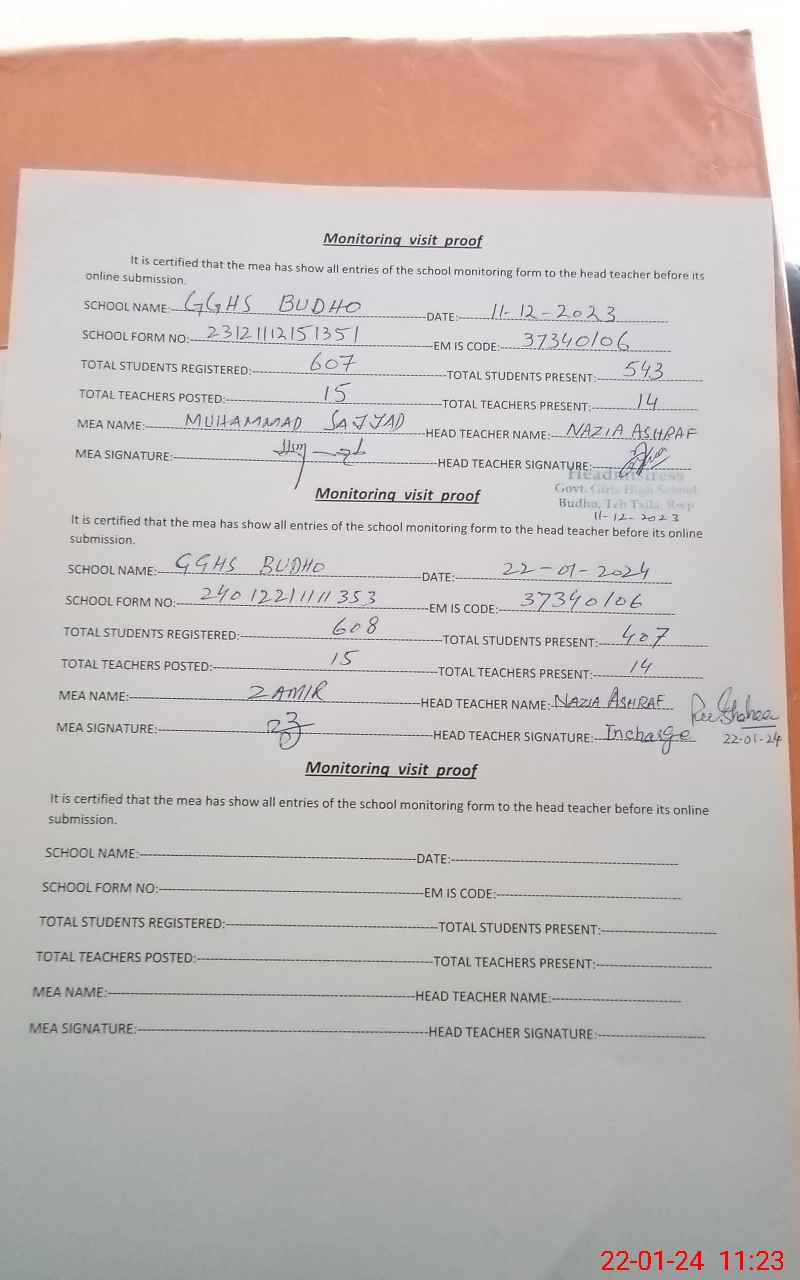 Monitoring visit proof
It is certified that the mea has show all entries of the school monitoring form to the head teacher before its
online submission.
SCHOOL NAME: GGHS BUDHO DATE: 11-12-2023
SCHOOL FORM NO: 23121112151351 EM IS CODE: 37340106
TOTAL STUDENTS REGISTERED: 607 TOTAL STUDENTS PRESENT: 543
TOTAL TEACHERS POSTED: 15 TOTAL TEACHERS PRESENT: 14
MEA NAME: MUHAMMAD SAJJAD HEAD TEACHER NAME: NAZIA ASHRAF
MEA SIGNATURE: HEAD TEACHER SIGNATURE:
Headmistress
Govt. Girls High School
Budho, Teh Taila, Rwp
11-12-2023
Monitoring visit proof
It is certified that the mea has show all entries of the school monitoring form to the head teacher before its online
submission.
SCHOOL NAME: GGHS BUDHO DATE: 22-01-2024
SCHOOL FORM NO: 24012211111353 EM IS CODE: 37340106
TOTAL STUDENTS REGISTERED: 608 TOTAL STUDENTS PRESENT: 407
TOTAL TEACHERS POSTED: 15 TOTAL TEACHERS PRESENT: 14
MEA NAME: ZAMIR HEAD TEACHER NAME: NAZIA ASHRAF
MEA SIGNATURE: HEAD TEACHER SIGNATURE: Incharge 22-01-24
Monitoring visit proof
It is certified that the mea has show all entries of the school monitoring form to the head teacher before its online
submission.
SCHOOL NAME: DATE:
SCHOOL FORM NO: EM IS CODE:
TOTAL STUDENTS REGISTERED: TOTAL STUDENTS PRESENT:
TOTAL TEACHERS POSTED: TOTAL TEACHERS PRESENT:
MEA NAME: HEAD TEACHER NAME:
MEA SIGNATURE: HEAD TEACHER SIGNATURE:
22-01-24 11:23